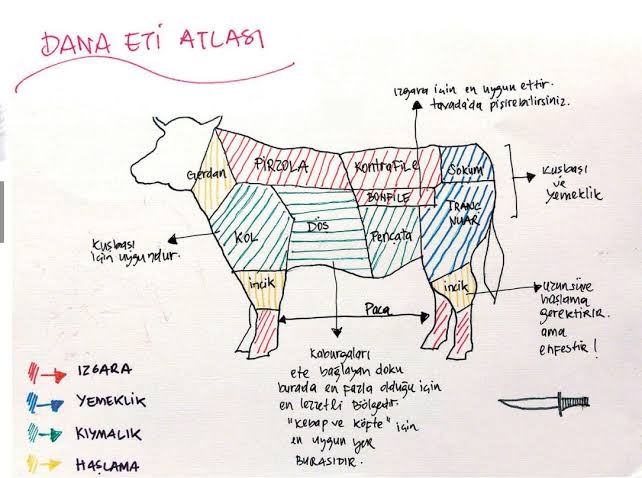 DANA ETİ ATLASI
Izgara için en uygun ettir.
tavada'da pişirebilirsiniz.
Gerdan
PİRZOLA
Kontrafile
Sokum
Kuşbaşı
ve
yemeklik
BONFİLE
TRANÇ
NUAR
KOL
DÖŞ
Pençata
Kuşbaşı
için uygundur.
incik
incik
Paça
uzun süre
haşlama
gerektirir.
ama
enfestir!
Kaburgaları
ete bağlayan doku
burada en fazla olduğu için
en lezzetli bölgedir.
"Kebap ve köfte" için
en uygun yer
BURASIDIR.
IZGARA
YEMEKLİK
KIYMALIK
HAŞLAMA